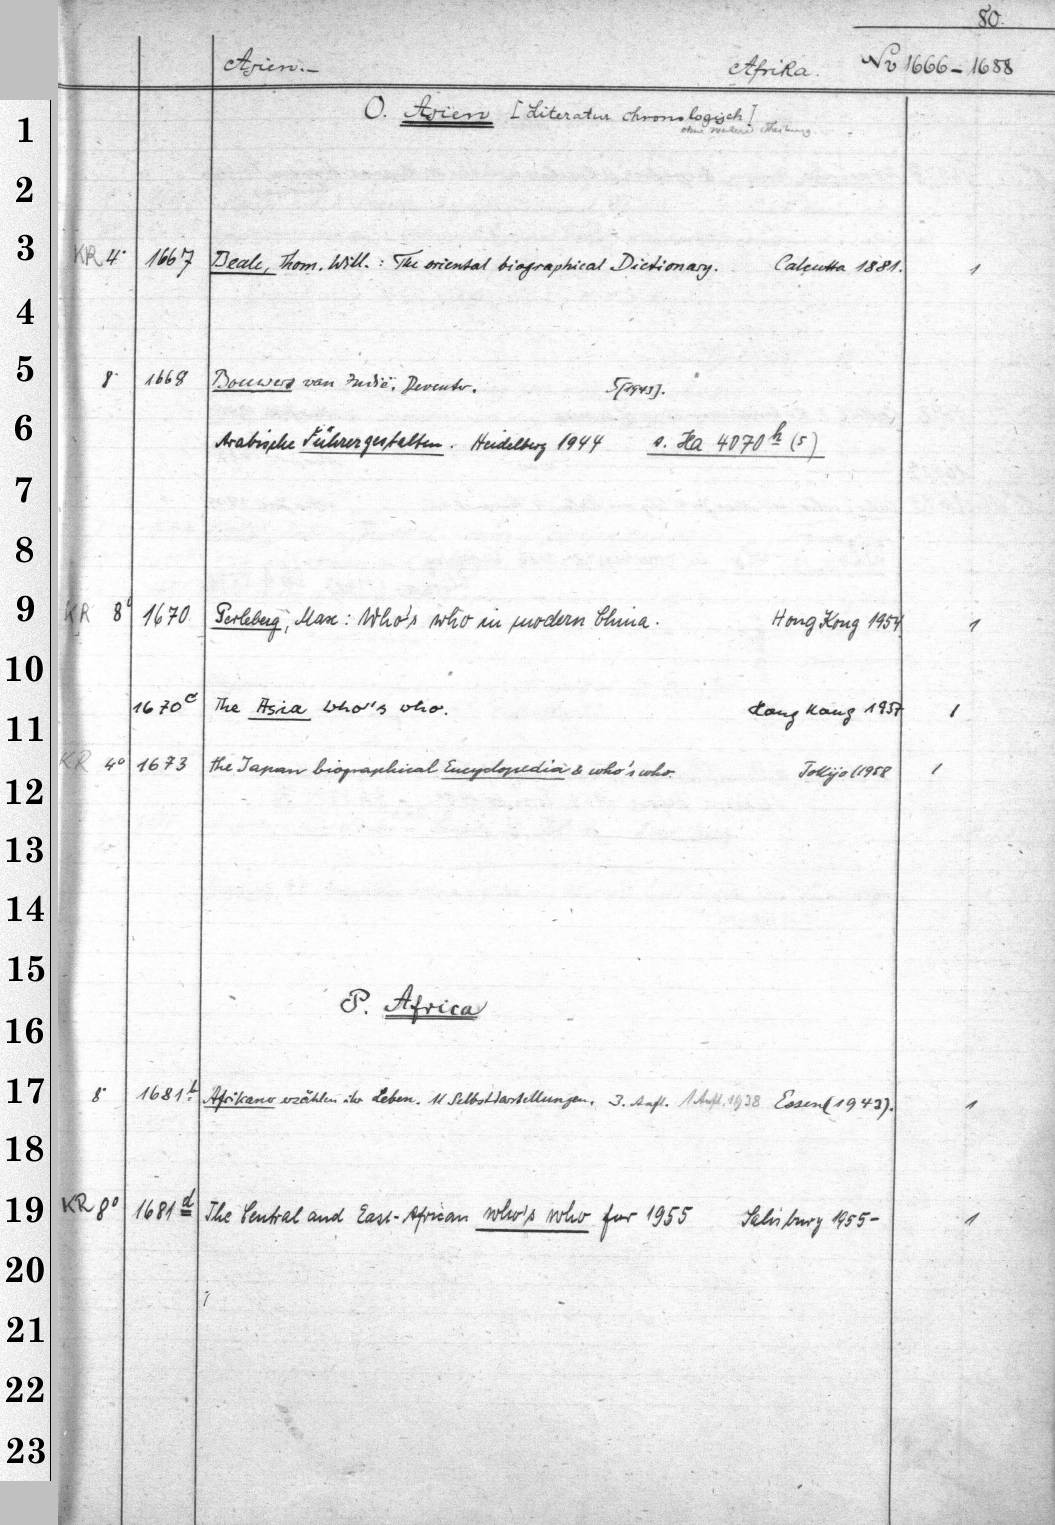 80.
Asien.- Afrika. No 1666-1688
1 O. Asien [Literatur chronologisch]
ohne weitere Theilung
2
3 KR 4° 1667 Beale, Thom. Will.: The oriental biographical Dictionary. Calcutta 1881. 1
4
5 8° 1668 Bouwers van Indië. Deventer. [1943].
6 Arabische Führergestalten. Heidelberg 1944 s. Ha 4070 h (5)
7
8
9 KR 8° 1670 Perleberg, Max: Who's who in modern China. Hong Kong 1954 1
10
11 1670 c The Asia who's who. Hong Kong 1957 1
12 KR 4° 1673 the Japan biographical Encyclopedia & who's who. Tokyo (1958 1
13
14
15
P. Africa
16
17 8° 1681 b Afrikaner erzählen ihr Leben. 11 Selbstdarstellungen. 3. Aufl. 1 Aufl. 1938 Essen (1943). 1
18
19 KR 8° 1681 d The Central and East-African who's who for 1955 Salisbury 1955- 1
20
21
22
23